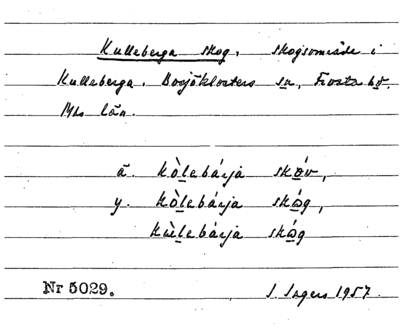 Kulleberga skog, skogsområde i
Kulleberga, Bosjöklosters sn, Frosta hd.
Mhs län.
ä. kòlebárja skóv,
y. kòlebárja skóg,
kùlebárja skóg
Nr 5029.
I. Ingers 1957.